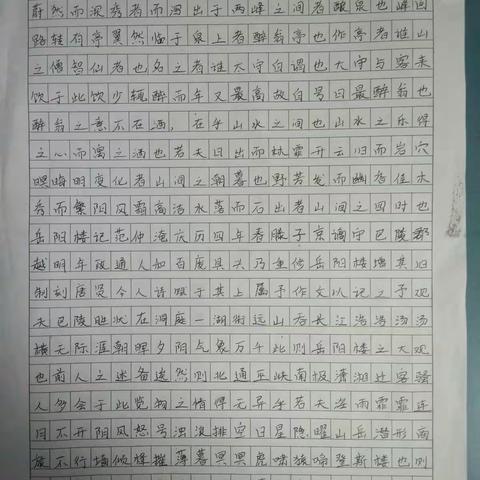 蔚然而深秀者而泻出于两峰之间者酿泉也峰回
路转有亭翼然临于泉上者醉翁亭也作亭者谁山
之僧智仙者也名之者谁太守自谓也太守与客来
饮于此饮少辄醉而年又最高故自号曰最醉翁也
醉翁之意不在酒，在乎山水之间也山水之乐得
之心而寓之酒也若夫日出而林霏开云归而岩穴
暝晦明变化者山间之朝暮也野芳发而幽香佳木
秀而繁阴风霜高洁水落而石出者山间之四时也
岳阳楼记范仲淹庆历四年春滕子京谪守巴陵郡
越明年政通人和百废具兴乃重修岳阳楼增其旧
制刻唐贤今人诗赋于其上属予作文以记之予观
夫巴陵胜状在洞庭一湖衔远山吞长江浩浩汤汤
横无际涯朝晖夕阴气象万千此则岳阳楼之大观
也前人之述备矣然则北通巫峡南极潇湘迁客骚
人多会于此览物之情得无异乎若夫淫雨霏霏连
月不开阴风怒号浊浪排空日星隐曜山岳潜形商
旅不行樯倾楫摧薄暮冥冥虎啸猿啼登斯楼也则